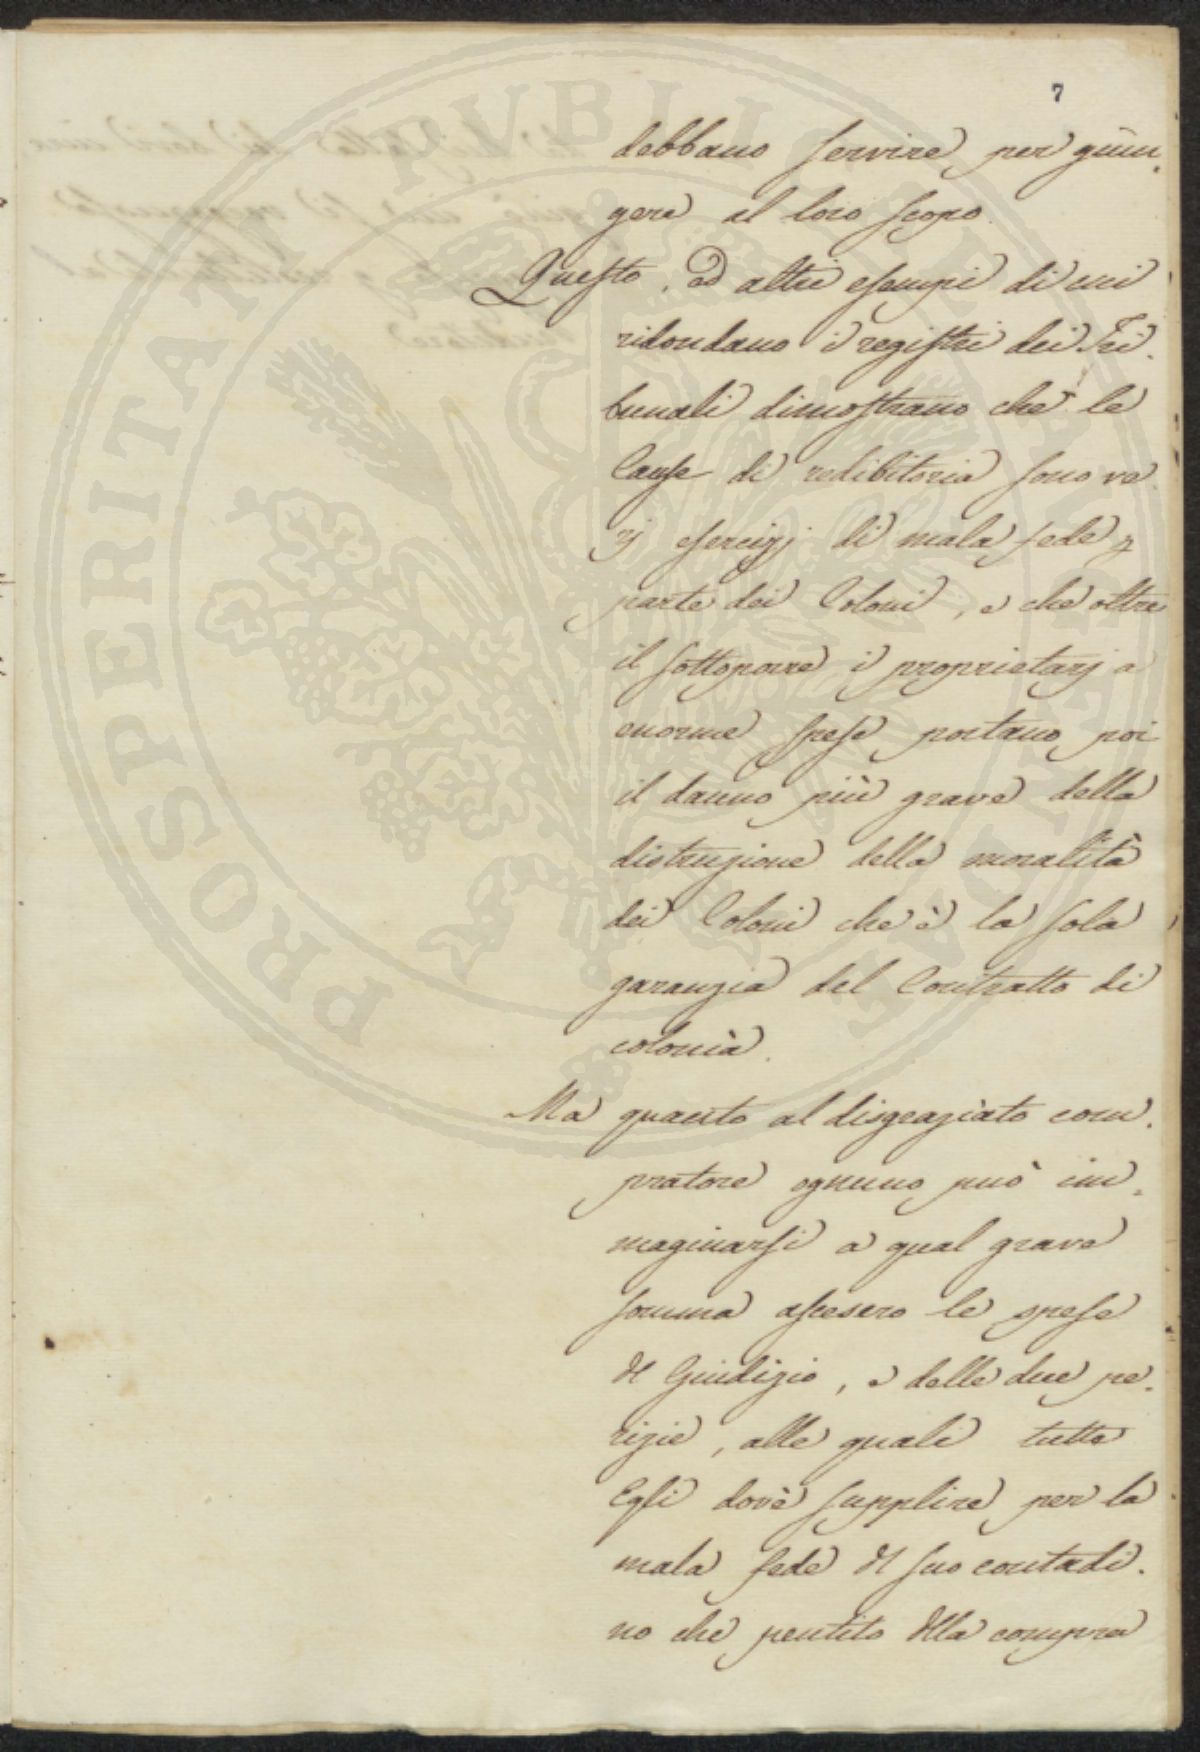 7
debbano servire per giun-
gere al loro scopo.
Questo, ed altri esempi di cui
ridondano i registri dei Tri-
bunali dimostrano che le
Cause di redibitoria sono ve-
rj esercizj di mala fede p
parte dei Coloni, e che oltre
il sottoporre i proprietarj a
enorme spese portano poi
il danno più grave della
distruzione della moralità
dei Coloni che è la sola
garanzia del Contratto di
colonìa.
Ma quanto al disgraziato com-
pratore ognuno può im-
maginarsi a qual grave
somma ascesero le spese
di Giudizio, e delle due pe-
rizie, alle quali tutte
Egli dovè supplire per la
mala fede di suo contadi-
no che pentito della compra
PROSPERITATI PUBLICAE AUGENDAE